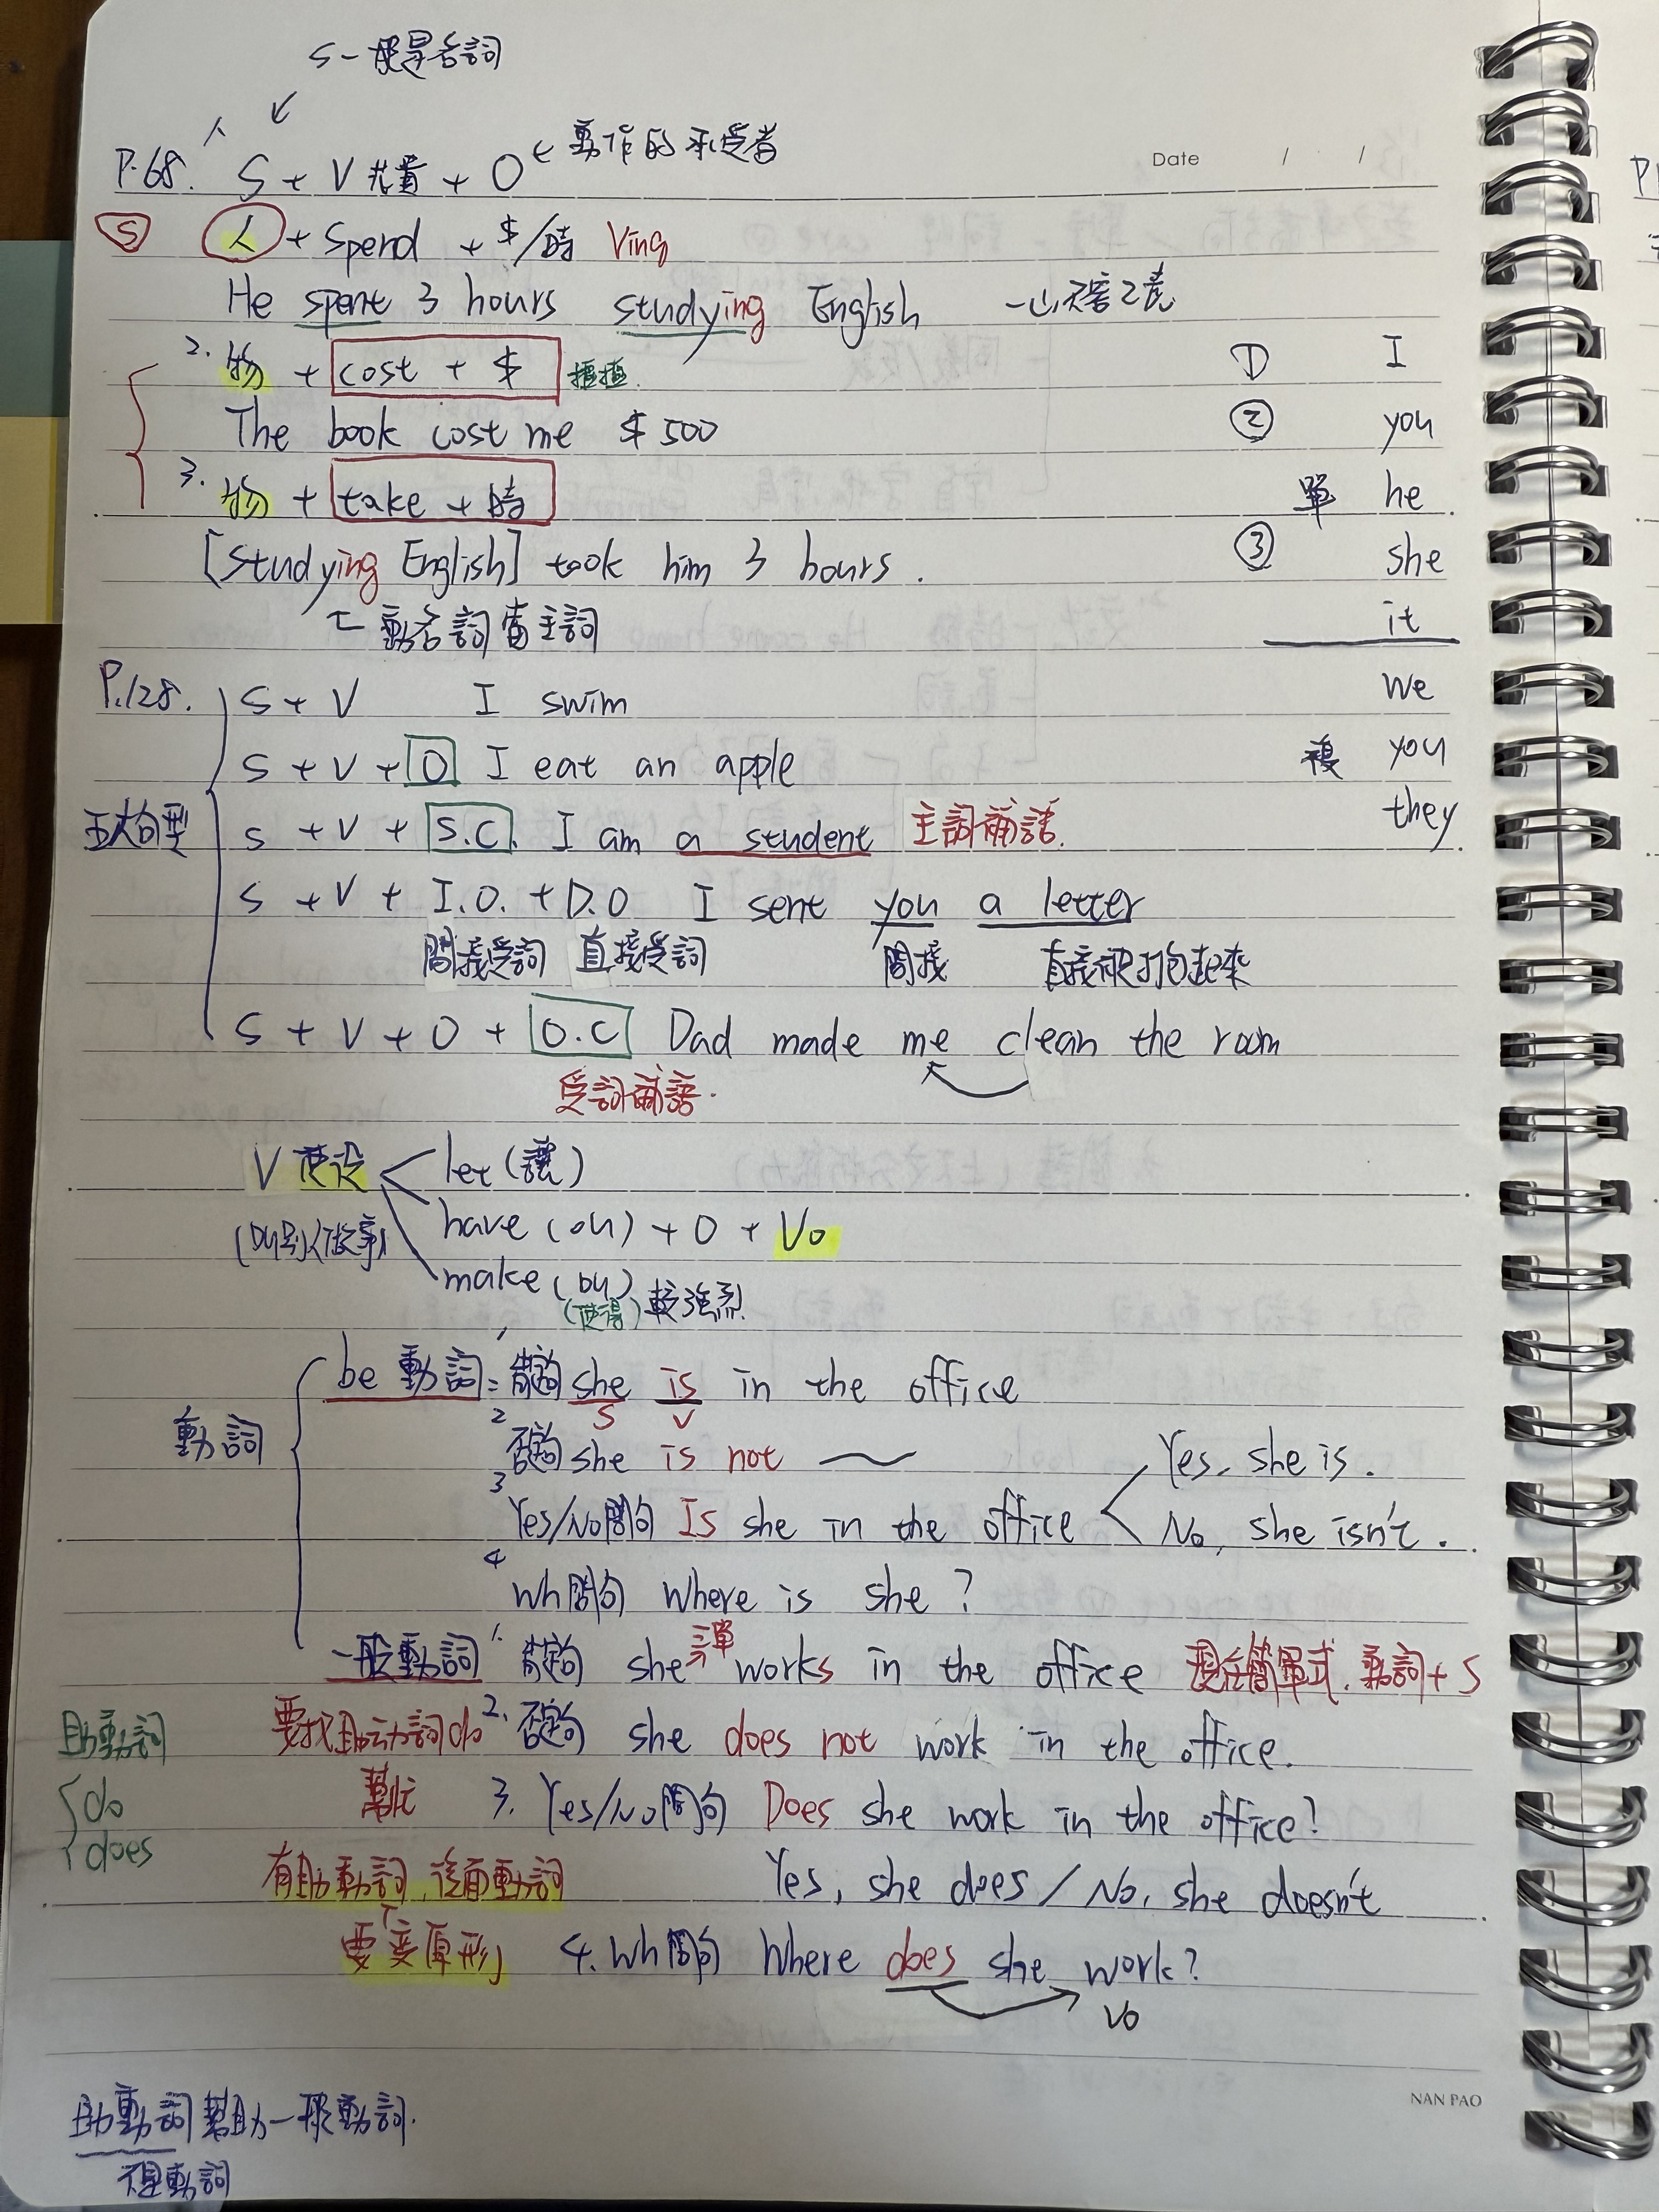 S一般是名詞
P.68. S + V 花費 + O ← 動作的承受者
Date / /
S 人 + spend + $/時 Ving
He spent 3 hours studying English 一山不容2虎
2. 物 + cost + $ ① I
The book cost me $500 ② you
3. 物 + take + 時 單 he
[studying English] took him 3 hours. ③ she
動名詞當主詞 it
P.128. S + V I swim we
S + V + O I eat an apple 複 you
五大句型 S + V + S.C. I am a student 主詞補語. they
S + V + I.O. + D.O I sent you a letter
間接受詞 直接受詞 間接 直接被打包起來
S + V + O + O.C Dad made me clean the room
受詞補語.
V 使役 let (讓)
(叫別人做事) have (叫) + O + Vo
make (叫) 較強烈
(使得)
be 動詞: 1 肯定句 she is in the office
S V
動詞 2 否定句 she is not Yes, she is.
3 Yes/No問句 Is she in the office No, she isn't.
4 wh問句 where is she ?
一般動詞 1. 肯定句 she 三單 works in the office 現在簡單式, 動詞+s
助動詞 要找助动詞do 2. 否定句 she does not work in the office.
do 幫忙 3. Yes/No問句 Does she work in the office?
does
有助動詞, 後面動詞 Yes, she does / No, she doesn't
要變原形 4. wh問句 Where does she work?
Vo
NAN PAO
助動詞幫助一般動詞.
不是動詞